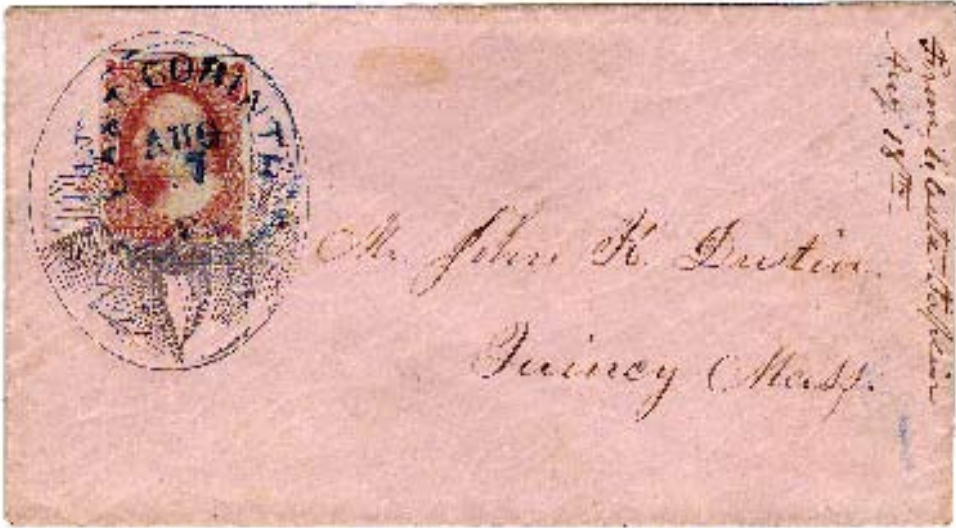 EAST CORINTH
AUG
17
Mr. John K. Dustin.
Quincy Mass.
From
Aug 18th